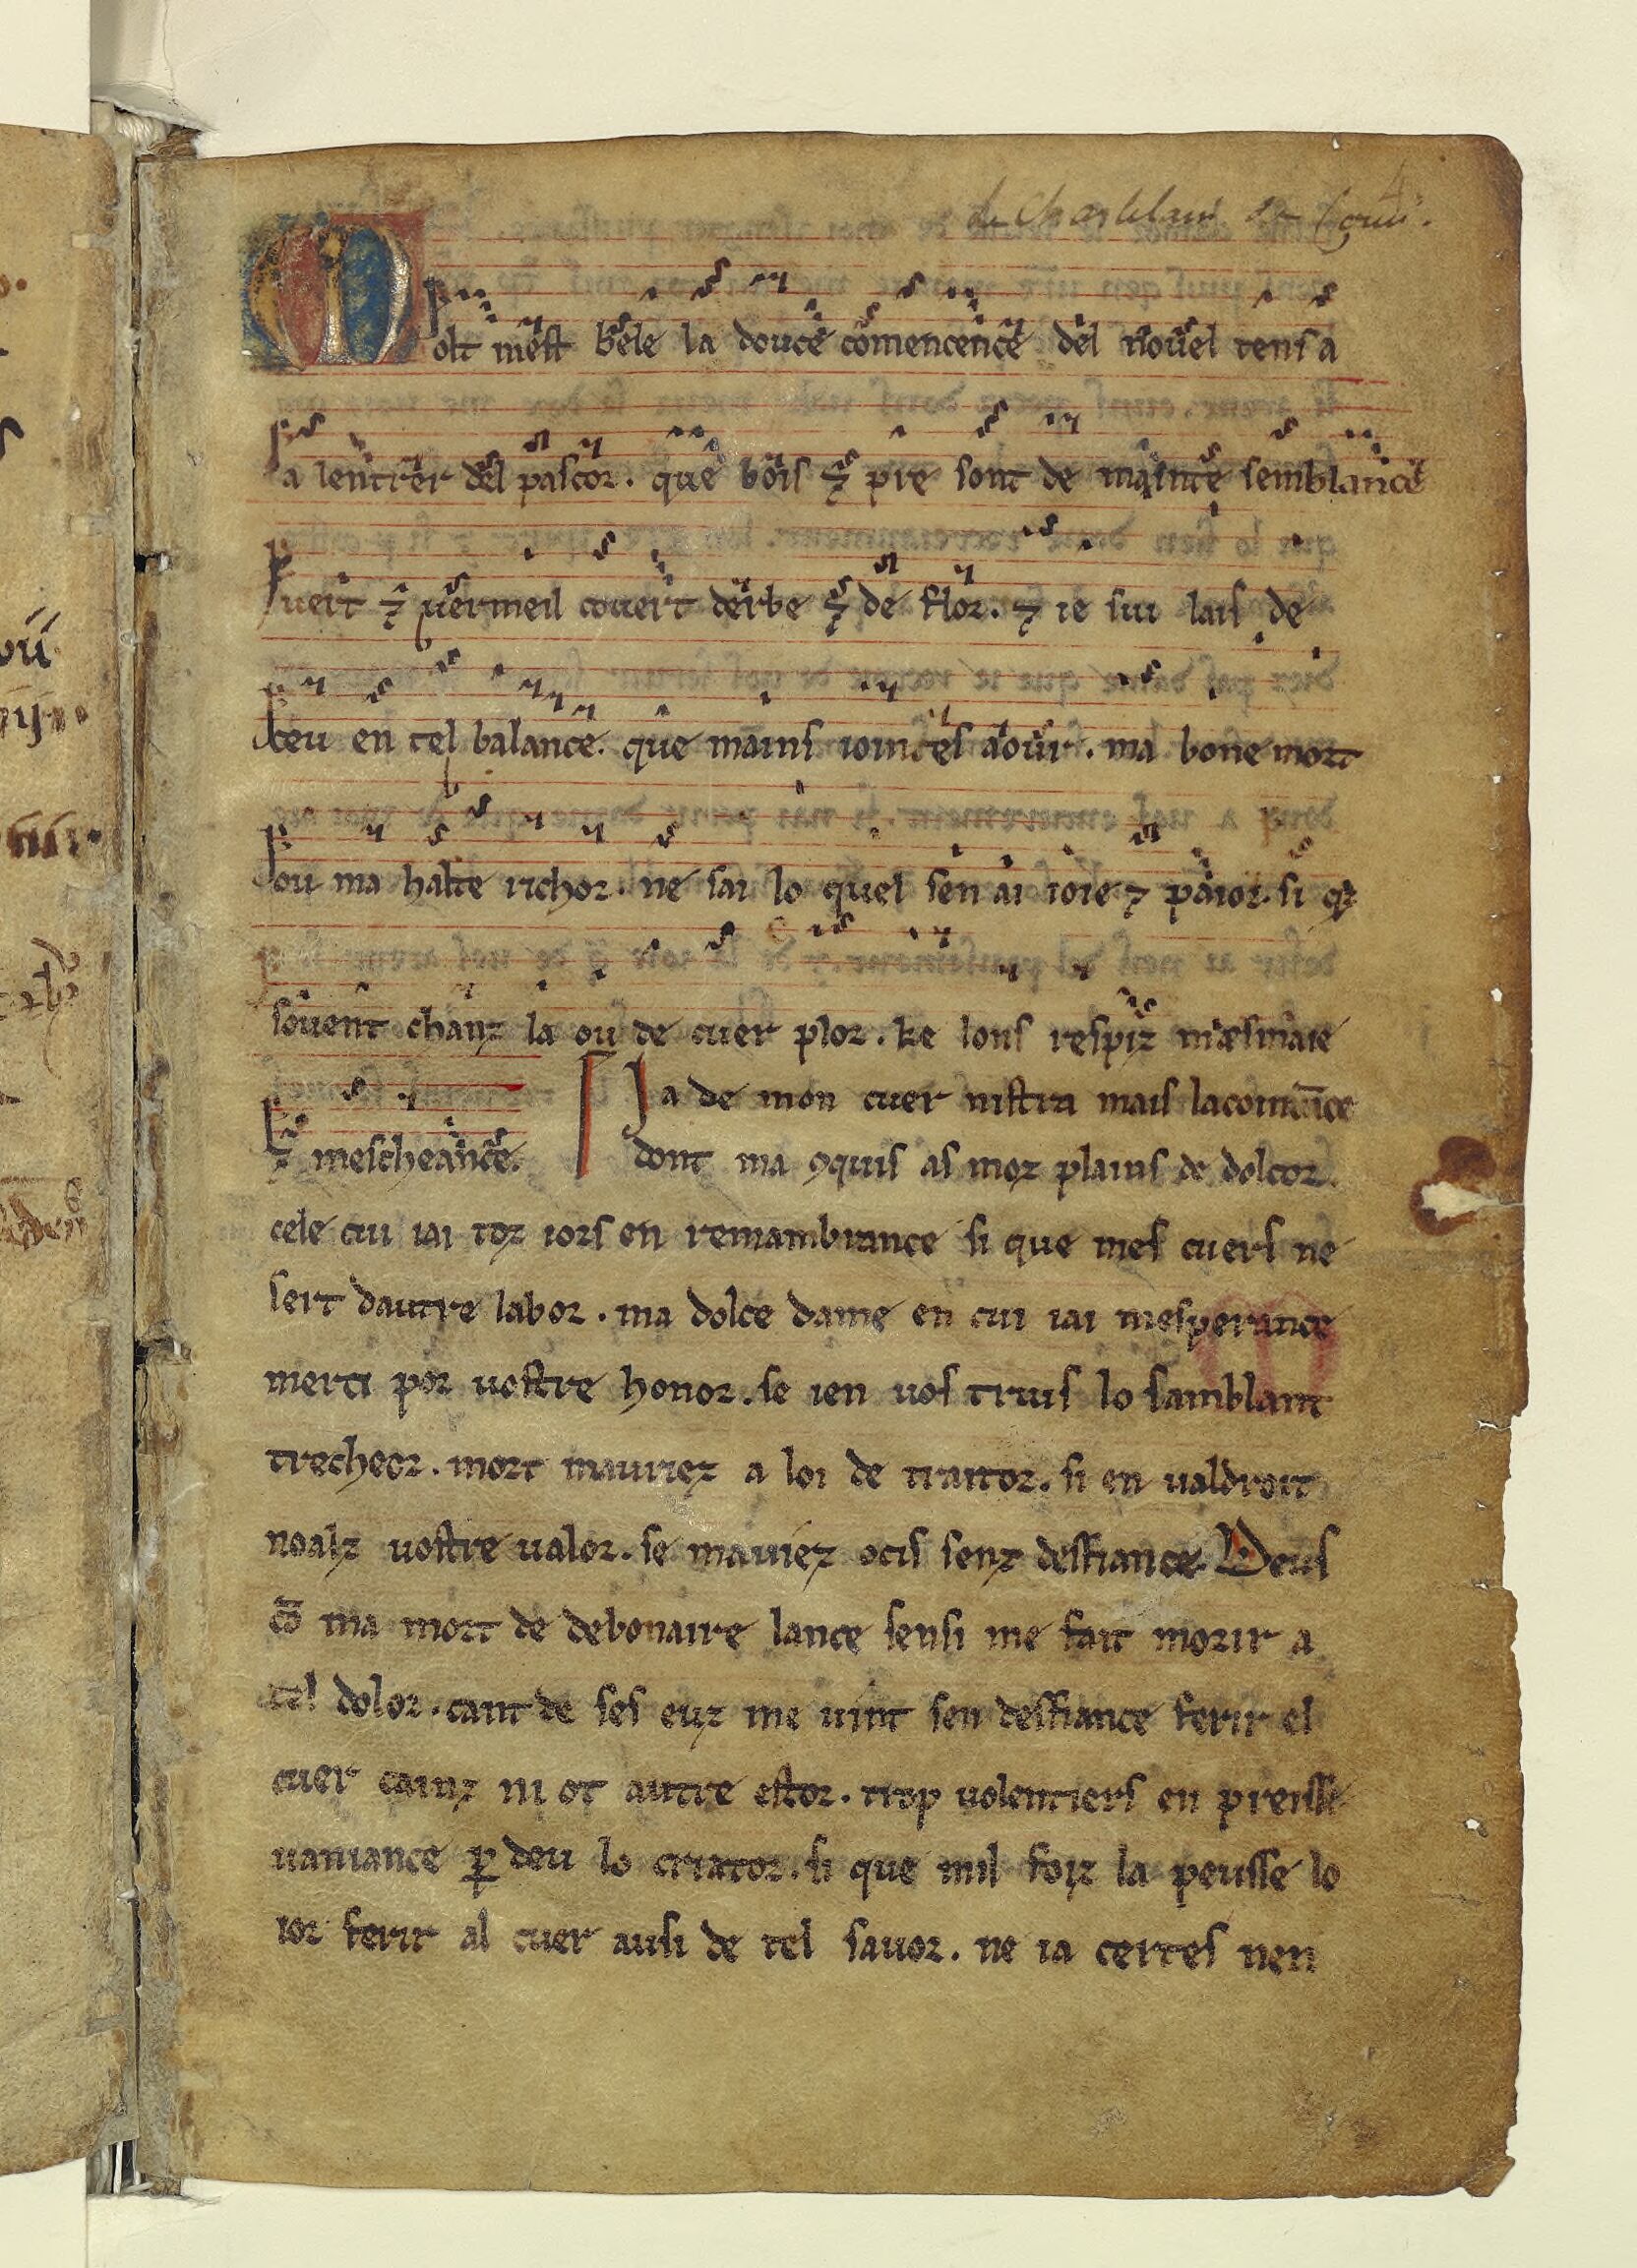 de Chastelain de Couci.
Molt mest bele la douce comencence del nouel tens a
a lentrer del pascor. que bois ⁊ pre sont de mainte semblance
uert ⁊ uermeil couert derbe ⁊ de flor. ⁊ ie sui lais de
ceu en tel balance. que mains iointes aour. ma bone mort
ou ma halte richor. ne sai lo quel sen ai ioie ⁊ paior. si qe
souent chanz la ou de cuer plor. ke lons respiz mesmaie
⁊ mescheance.
Ja de mon cuer nistra mais lacointāce
dont ma ꝯquis as moz plains de dolcor.
cele cui iai toz iors en remambrance si que mes cuers ne
sert dautre labor. ma dolce dame en cui iai mesperance
merci por uostre honor. se ien uos truis lo samblant
trecheor. mort mauriez a loi de traitor. si en ualdroit
noalz uostre ualor. se mauiez ocis senz desfiance. Deus
cō ma mort de debonaire lance sensi me fait morir a
tel dolor. cant de ses euz me uint sen desfiance ferir el
cuer cainz ni ot autre estor. trop uolentiers en preisse
uaniance ꝑ deu lo criator. si que mil foiz la peusse lo
ior ferir al cuer ausi de tel sauor. ne ia certes nen